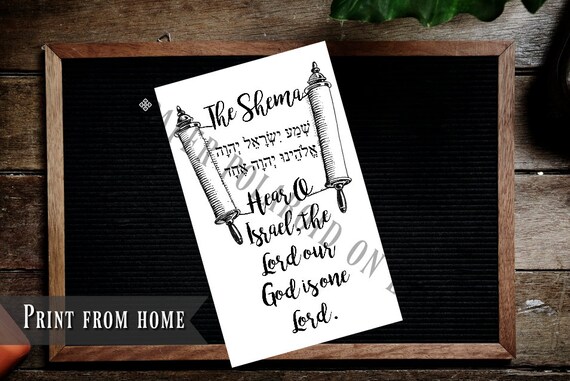 The Shema
שְׁמַע יִשְׂרָאֵל יְהוָה
אֱלֹהֵינוּ יְהוָה אֶחָד
Hear O
Israel, the
Lord our
God is one
Lord.
POLAROID ON
Print from home